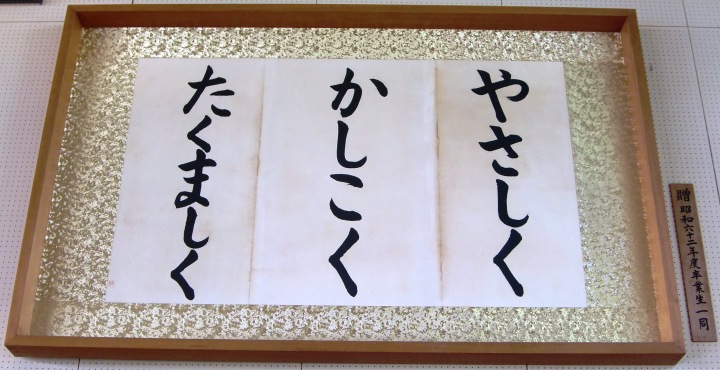 やさしく
かしこく
たくましく
贈 昭和六十二年度卒業生一同